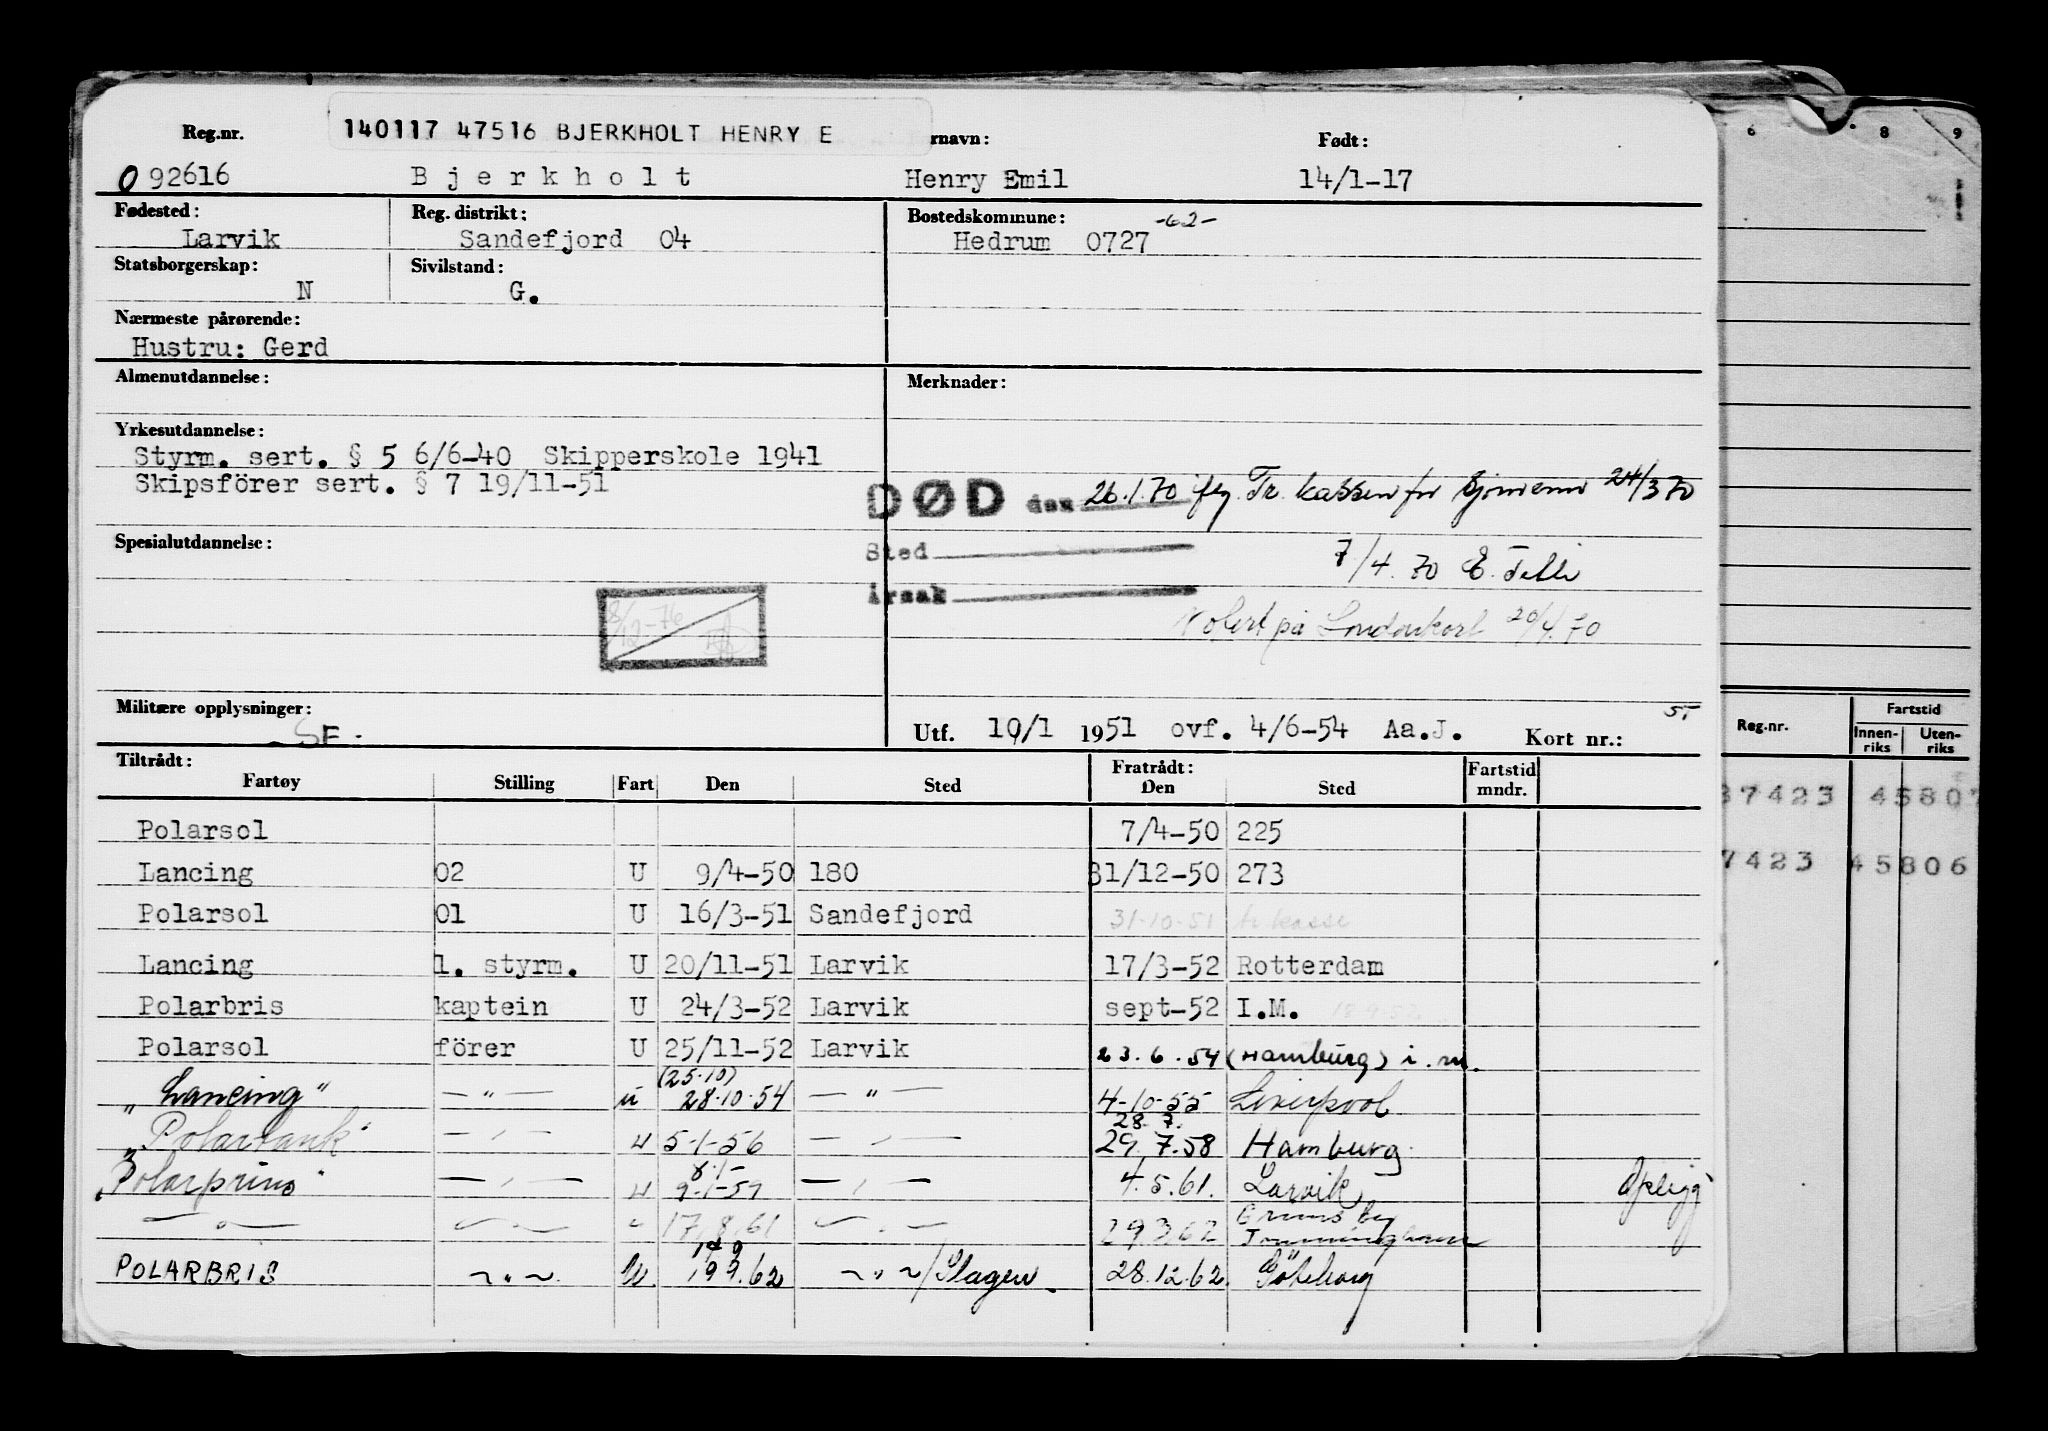 Reg.nr. 140117 47516 BJERKHOLT HENRY E rnavn: Født:
092616 Bjerkholt Henry Emil 14/1-17
Fødested: Reg. distrikt: Bostedskommune: -62-
Larvik Sandefjord 04 Hedrum 0727
Statsborgerskap: Sivilstand:
N G.
Nærmeste pårørende:
Hustru: Gerd
Almenutdannelse: Merknader:
Yrkesutdannelse:
Styrm. sert. § 5 6/6-40 Skipperskole 1941
Skipsförer sert. § 7 19/11-51
DØD den 26.1.70 Tr. kassen for 24/3 70
Spesialutdannelse:
Sted 7/4.70 E.
Årsak
8/12-76
Notert på Londonkort 20/4.70
Militære opplysninger:
SF.
Utf. 10/1 1951 ovf. 4/6-54 Aa.J. Kort nr.:
Tiltrådt: Fratrådt: Fartstid
Fartøy Stilling Fart Den Sted Den Sted mndr.
Polarsol 7/4-50 225
Lancing 02 U 9/4-50 180 31/12-50 273
Polarsol 01 U 16/3-51 Sandefjord 31-10-51 tr kasse
Lancing 1. styrm. U 20/11-51 Larvik 17/3-52 Rotterdam
Polarbris kaptein U 24/3-52 Larvik sept-52 I.M. 18-9-52
Polarsol förer U 25/11-52 Larvik 23.6.54 (Hamburg) i.m.
(25.10)
"Lancing" — " — u 28.10.54 — " — 4-10-55 Liverpool
28.7.
"Polartank" — " — u 5-1-56 — " — 29.7.58 Hamburg.
8/1-
"Polarprins" — " — u 9-1-59 — " — 4.5.61. Larvik
— " — — " — " 17.8.61 — " — 29.3.62 Grimsby
POLARBRIS — " — U. 19.9.62 — " — / Slagen. 28.12.62. Göteborg
6 8 9
Reg.nr. Fartstid
Innen-riks Uten-riks
37423 45807
7423 45806